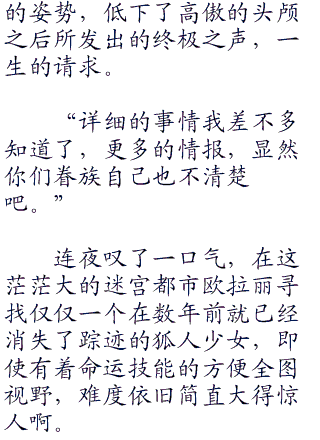 的姿势，低下了高傲的头颅
之后所发出的终极之声，一
生的请求。
“详细的事情我差不多
知道了，更多的情报，显然
你们眷族自己也不清楚
吧。”
连夜叹了一口气，在这
茫茫大的迷宫都市欧拉丽寻
找仅仅一个在数年前就已经
消失了踪迹的狐人少女，即
使有着命运技能的方便全图
视野，难度依旧简直大得惊
人啊。